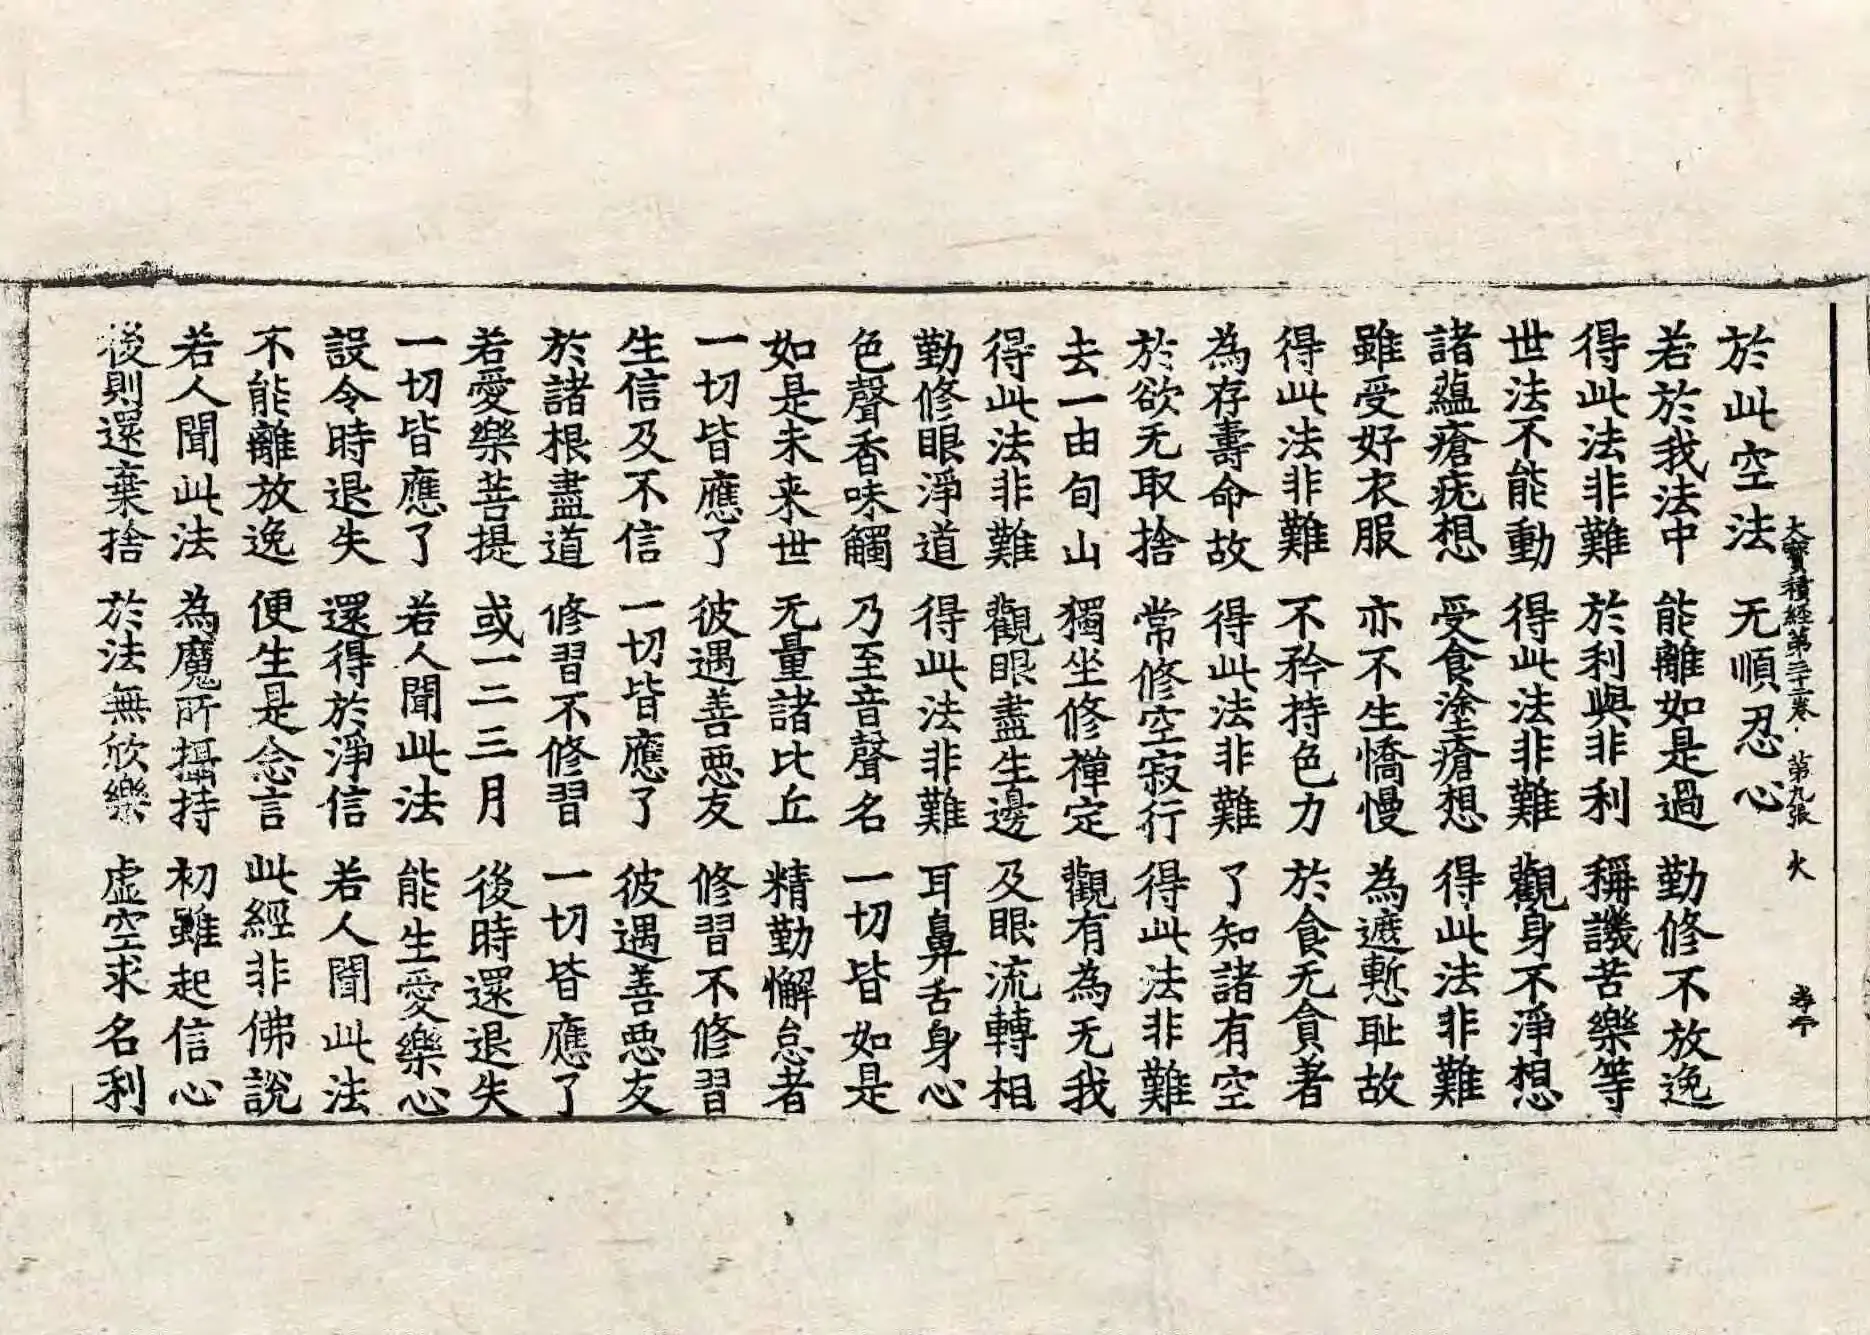 大寶積經第三十三卷 第九張 火
於此空法 无順忍心
若於我法中 能離如是過 勤修不放逸
得此法非難 於利與非利 稱譏苦樂等
世法不能動 得此法非難 觀身不淨想
諸蘊瘡疣想 受食塗瘡想 得此法非難
雖受好衣服 亦不生憍慢 為遮慙耻故
得此法非難 不矜持色力 於食无貪著
為存壽命故 得此法非難 了知諸有空
於欲无取捨 常修空寂行 得此法非難
去一由旬山 獨坐修禪定 觀有為无我
得此法非難 觀眼盡生邊 及眼流轉相
勤修眼淨道 得此法非難 耳鼻舌身心
色聲香味觸 乃至音聲名 一切皆如是
如是未来世 无量諸比丘 精勤懈怠者
一切皆應了 彼遇善惡友 修習不修習
生信及不信 一切皆應了 彼遇善惡友
於諸根盡道 修習不修習 一切皆應了
若愛樂菩提 或一二三月 後時還退失
一切皆應了 若人聞此法 能生愛樂心
設令時退失 還得於淨信 若人聞此法
不能離放逸 便生是念言 此經非佛說
若人聞此法 為魔所攝持 初雖起信心
後則還棄捨 於法無欣樂 虛空求名利